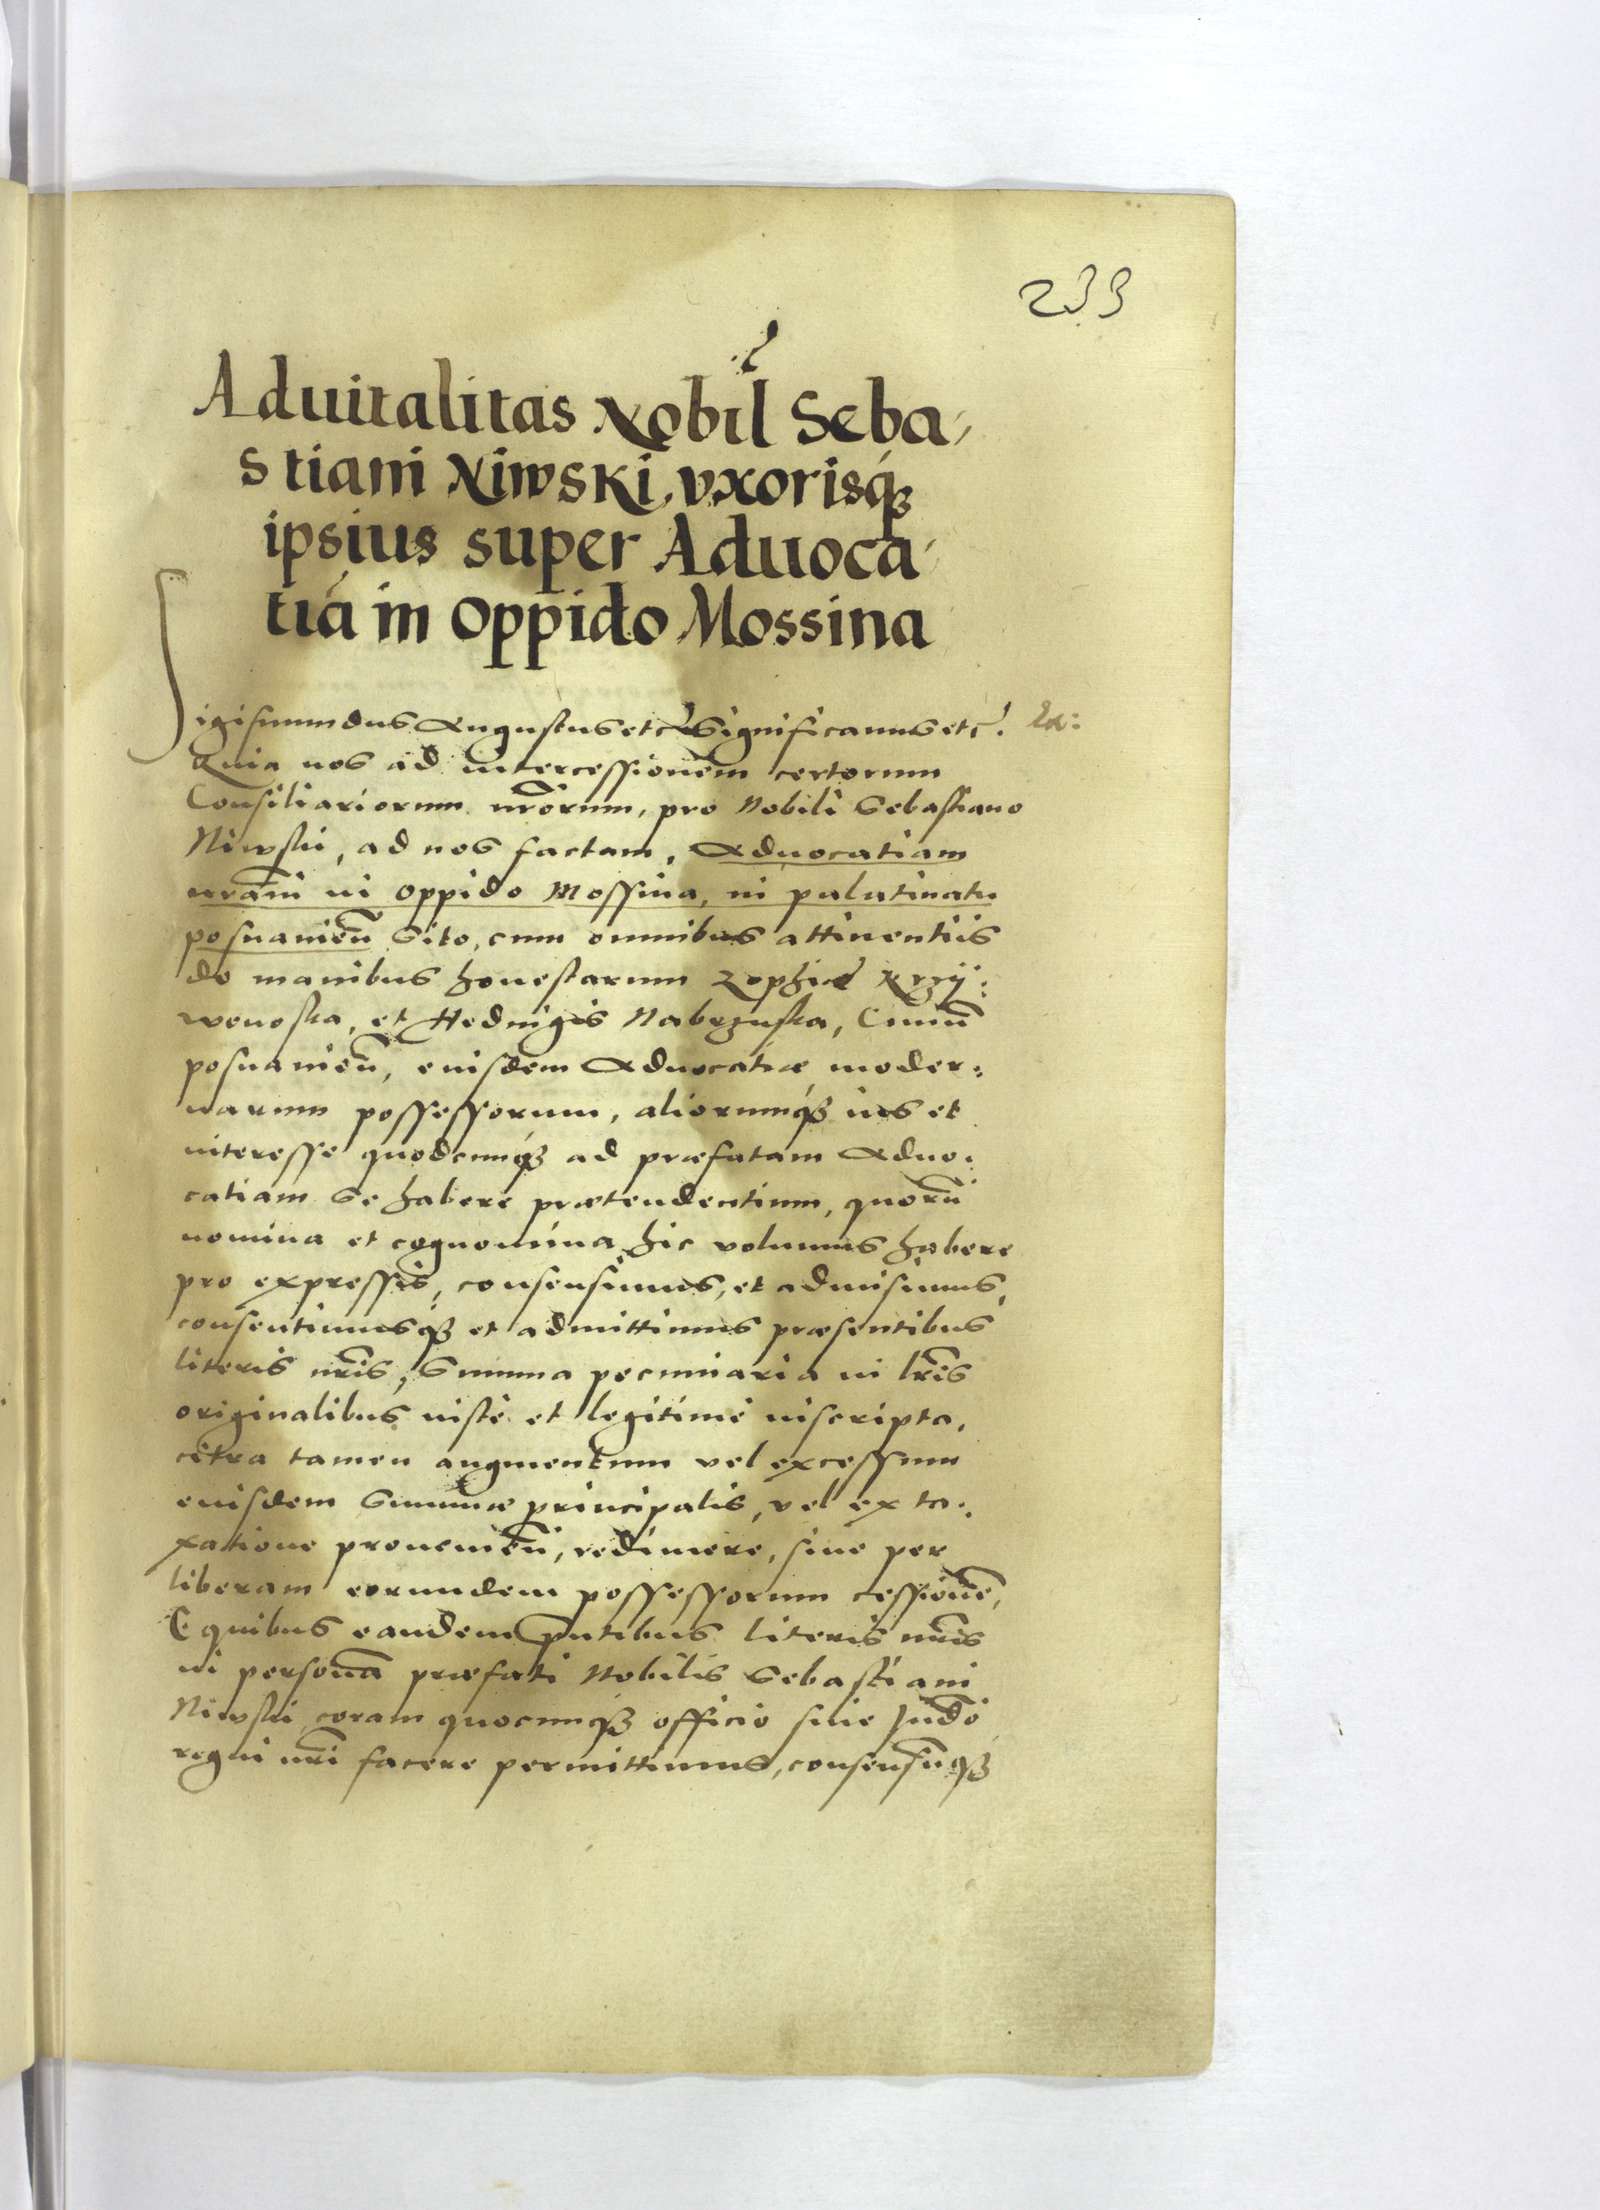 233
Aduitalitas Nobil Seba-
stiani Niwski, vxorisq̃
ipsius super Aduoca-
tiã in oppido Mossina
Sigismundus Augustus etc̃ Significamus etc̃.
Quia nos ad intercessionem certorum
Consiliariorum nrõrum, pro Nobili Sebastiano
Niwski, ad nos factam, Aduocatiam
nrãm in oppido Mossina, in palatinatu
posnanieñ sito, cum omnibus attinentiis
de manibus honestarum Zophiæ Krzy:
wonoska, et Heduigis Nabezuska, Ciuiũ
posnanieñ, euisdem Aduocatiæ moder:
narum possessorum, aliorumq̃ ius et
interesse quodcunq̃ ad præfatam Aduo:
catiam se habere prætendentium, quorũ
nomina et cognomina hic volumus habere
pro expressis, consensimus, et admisimus,
consentimusq̃ et admittimus præsentibus
literis nrĩs, Summa pecuniaria in lrĩs
originalibus iuste et legitime inscripta,
citra tamen augmentum vel excessum
euisdem Summæ principalis, vel ex ta:
xatione prouenieñ, redimere, siue per
liberam eorundem possessorum cessionẽ,
E quibus eandem pñtibus literis nrĩs
in personã præfati Nobilis Sebastiani
Niwski coram quocunq̃ officio siue Judõ
regni nrĩ facere permittimus, consensũq̃